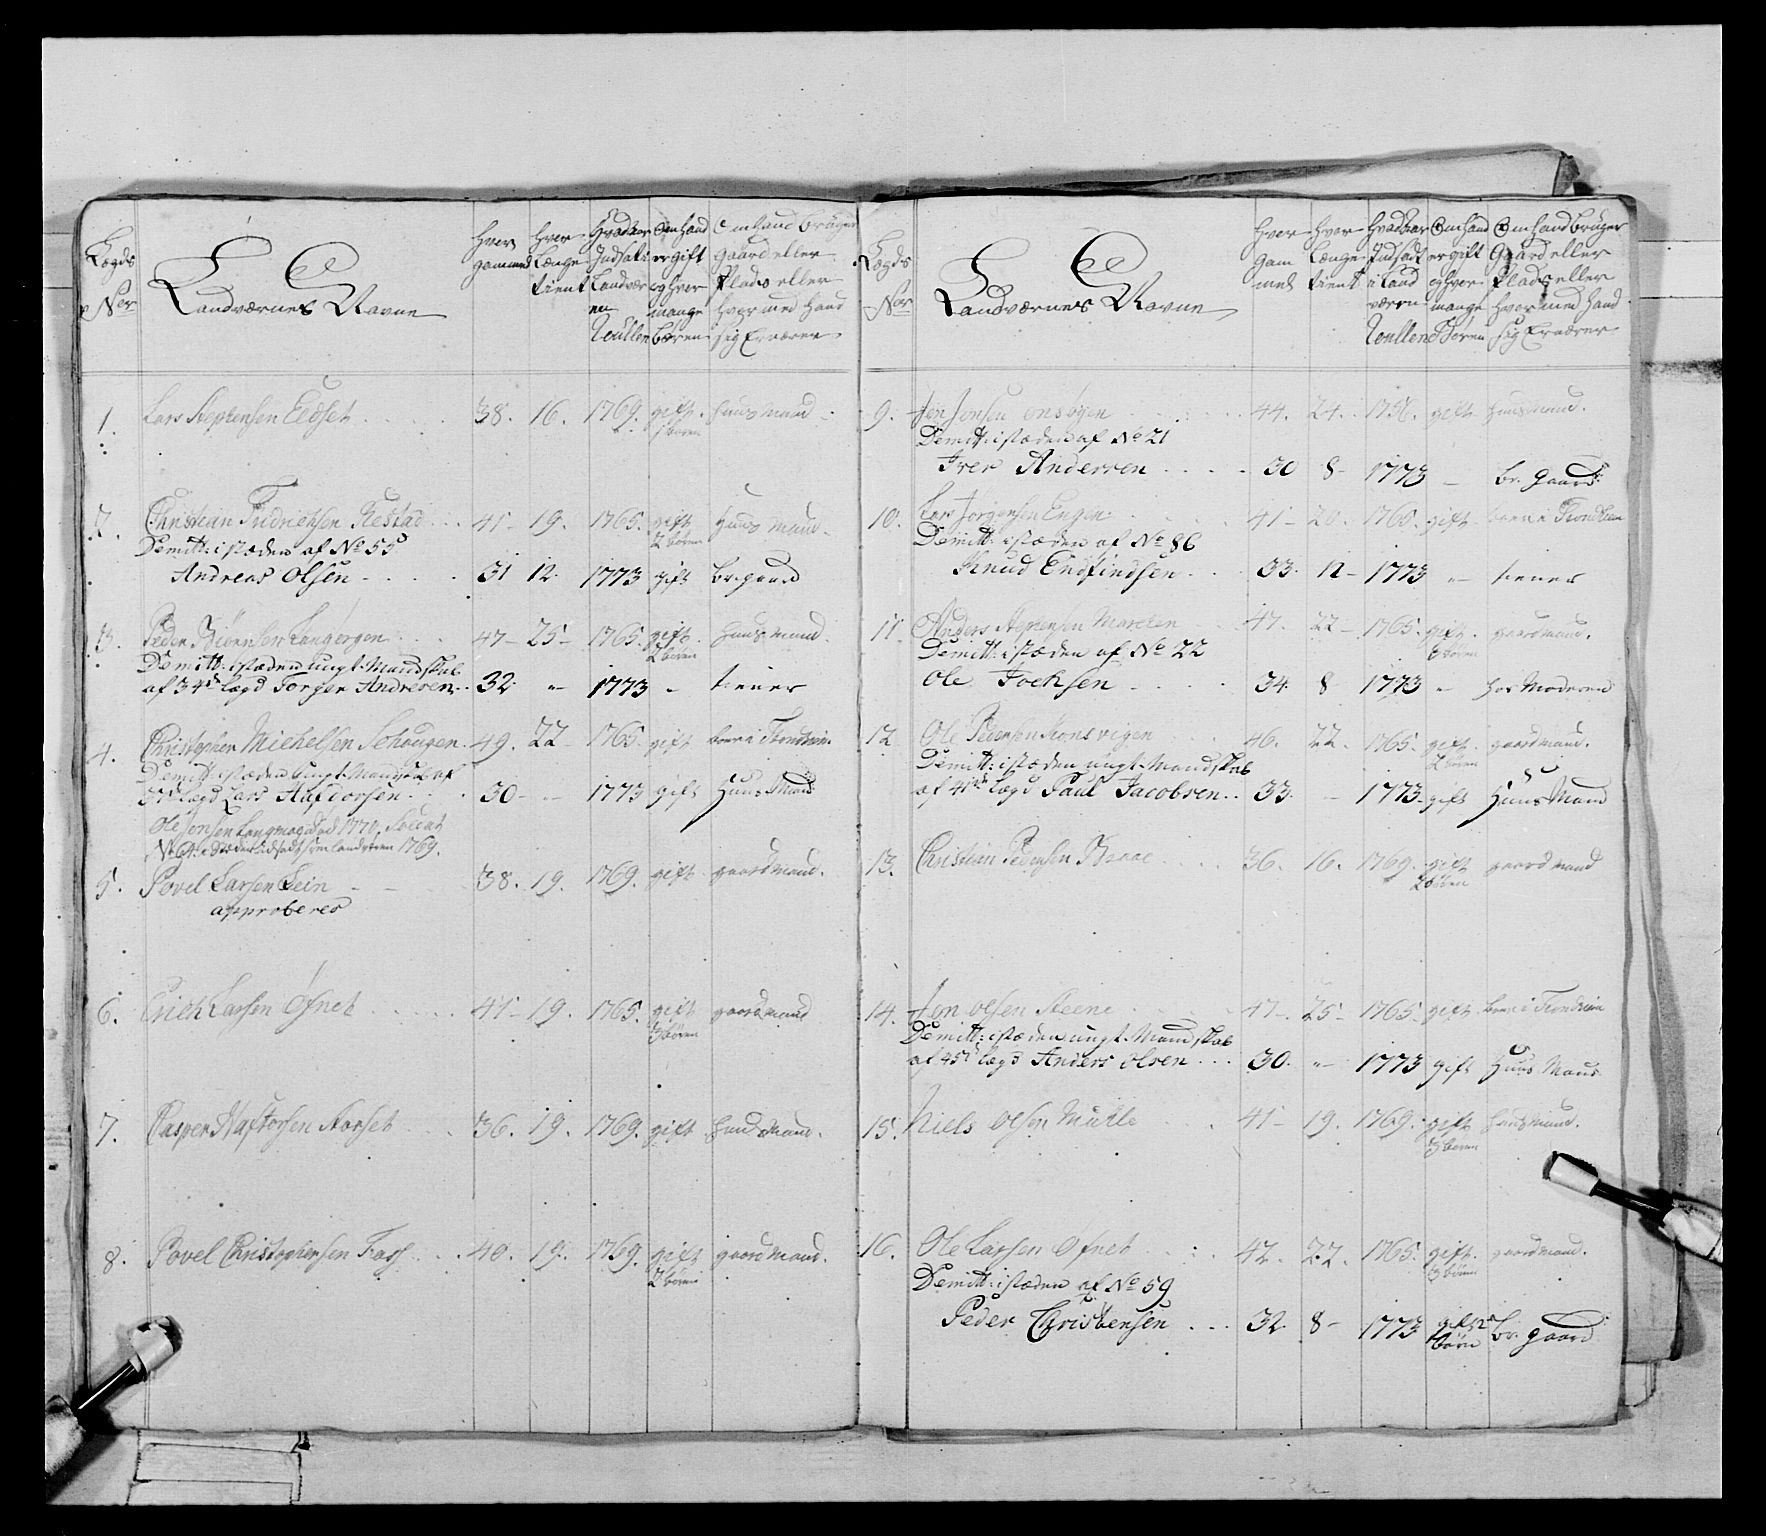 Lægds Nor
Landværnes Navne
Hvor gammel
Hvor Længe tient
Hvad Aar Indsatt Landvær en Roullen
Om Hand er gift og hvor mange bæren
Om Hand bruger Gaard eller Plads eller hvor med Hand sig Ernærer
1. Lars Stephensen Eidset 38. 16. 1769. gift. huusmand
børen
2. Christian Fridrichsen Restad 41 - 19. 1765. gift Huus mand
2 børen
Demitt: i stæden af No 55
Andreas Olsen 31 12. 1773 gift br. gaard
3. Peder 47 - 25 - 1765. gift huusmand.
2 børen
Demitt: i stæden ungt Mandskab
af 34de lægd Torger Andresen 32. " 1773 - tiener
4. Christopher Michelsen Schougen. 49. 22 - 1765. gift boer i Trondhiem
Demitt: i stæden ungt Mandskab af
37de lægd Lars Hafdorsen 30 - - 1773 gift Huus Mand
Ole Jonsen 1770. Soldat
No 1769.
5. Povel Larsen Lein 38. 19. 1769. gift. gaardmand.
approberes
6. Erich Larsen Øfnet 41 - 19. 1765. gift gaardmand
3 børen
7. Casper Haftorsen Aarset 36. 19. 1769. gift huusmand.
8. Povel Christophersen Fass 40. 19. 1769. gift gaardmand.
2 børen
Lægds Nor
Landværnes Navne
Hvor Gam mel
Hvor Længe tient
Hvad Aar Indsadt i Land væren Roullen
Om Hand er gift og hvor mange Børen
Om Hand Bruger Gaard eller Plads eller hvor med Hand sig Ernærer
9. Jon Jonsen 44. 24. 1756. gift huusmand.
Demitt: i stæden af No 21
Iver Andersen 30 8 - 1773 - br. gaard
10. Lars Jørgensen Engen 41 - 20. 1765. gift. boer i Trondhiem
Demitt: i stæden af No 86
Knud Endfindsen 33. 12 - 1773 " tiener
11. Anders Stephensen 47. 22 - 1765. gift. gaardmand.
3 børen
Demitt: i stæden af No 22
Ole Jochsen 34. 8 - 1773 " hos Moderen
12. Ole Pedersen 46. 22. 1765. gift. gaardmand.
2 børen
Demitt: i stæden ungt Mandskab
af 41de lægd Paul Jacobsen 33. - 1773 - gift Huus Mand
13. Christian Pedersen 36. 16. 1769. gift gaardmand
2 børen
14. Jon Olsen Steene 47 - 25 - 1765. gift boer i Trondhiem
Demitt: i stæden ungt Mandskab
af 45de lægd Anders Olsen 30. " 1773 gift Huus Mand
15. Niels Olsen 41 - 19. 1769. gift huusmand.
3 børen
16. Ole Larsen Øfnet 42. 22. 1765. gift. gaardmand.
3 børen
Demitt: i stæden af No 59
Peder Christensen 32 8 - 1773 gift br. gaard
børn